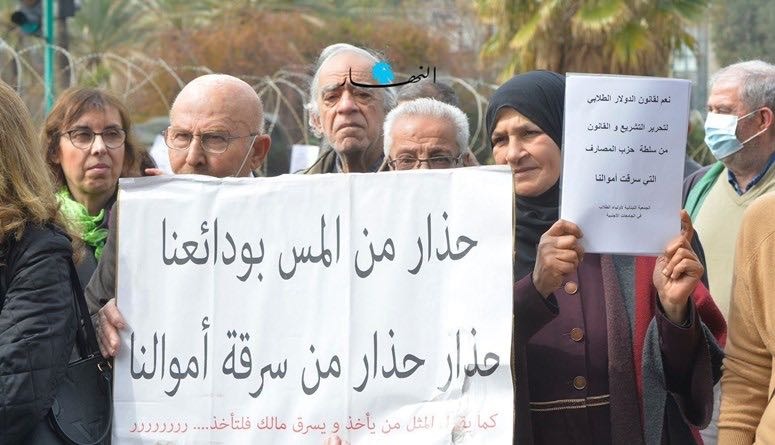 النهار
حذار من المس بودائعنا
حذار حذار من سرقة أموالنا
كما يقول المثل من يأخذ و يسرق مالك فلتأخذ.... رررررررر
نعم لقانون الدولار الطلابي
لتحرير التشريع و القانون
من سلطة حزب المصارف
التي سرقت أموالنا
الجمعية اللبنانية لأولياء الطلاب
في الجامعات الأجنبية